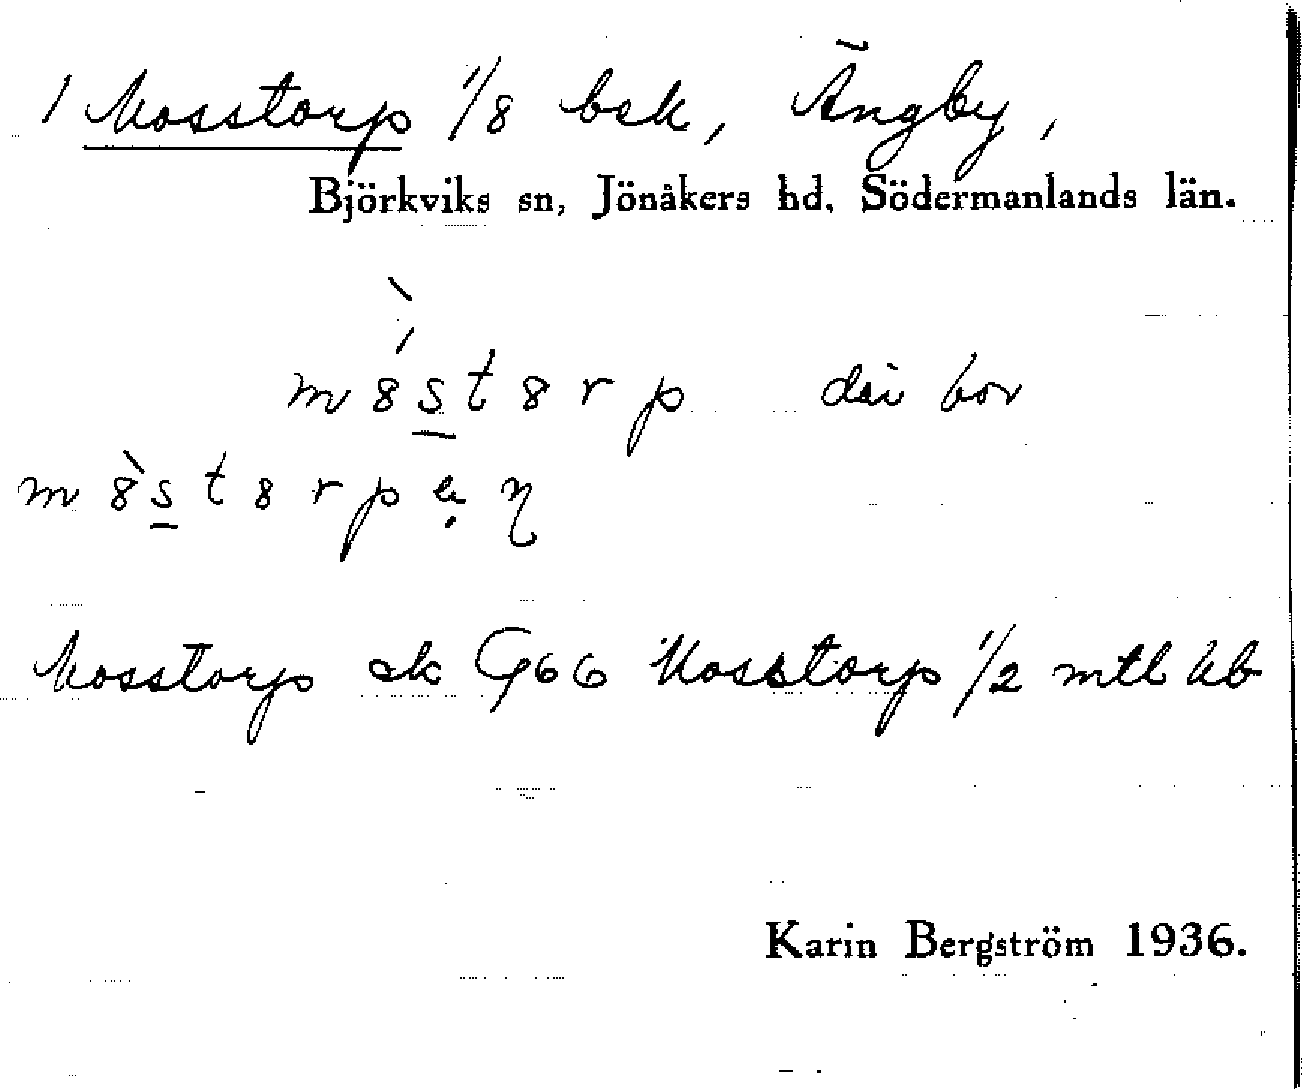 1 Mosstorp 1/8 bsk, Ängby,
Björkviks sn, Jönåkers hd, Södermanlands län.
m8st8rp där bor
m8st8rpen
Mosstorp ek G 66 Mosstorp 1/2 mtl
Karin Bergström 1936.